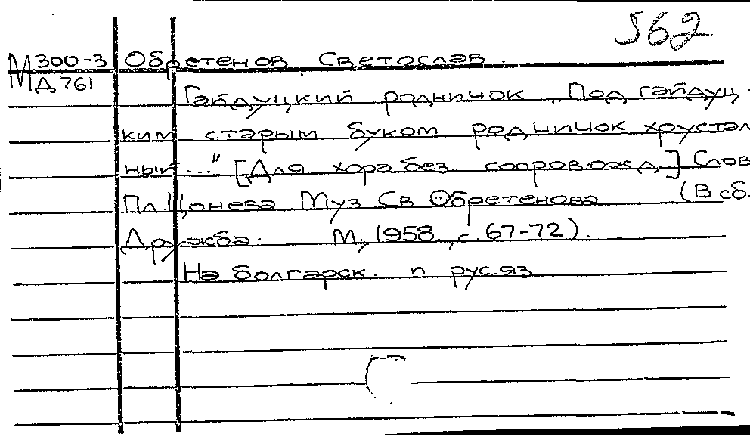 562
М 300-3 Обретенов, Светослав.
МД 761
Гайдуцкий родничок. „Под гайдуц-
ким старым буком родничок хрустал
ный..." [Для хора без сопровожд.] Слов
Пл. Цонева Муз. Св. Обретенова (В сб.
Дружба. М., 1958, с. 67-72).
На болгарск. и рус. яз.